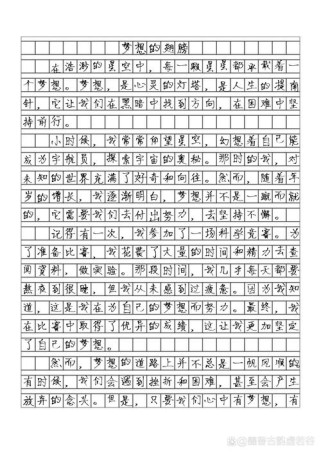 梦想的翅膀
在浩渺的星空中，每一颗星星都承载着一
个梦想。梦想，是心灵的灯塔，是人生的指南
针，它让我们在黑暗中找到方向，在困难中坚
持前行。
小时候，我常常仰望星空，幻想着自己能
成为宇航员，探索宇宙的奥秘。那时的我，对
未知的世界充满了好奇和向往。然而，随着年
岁的增长，我逐渐明白，梦想并不是一蹴而就
的，它需要我们去付出努力，去坚持不懈。
记得有一次，我参加了一场科学竞赛。为
了准备比赛，我花费了大量的时间和精力去查
阅资料，做实验。那段时间，我几乎每天都要
熬夜到很晚，但我从未感到过疲惫。因为我知
道，这是我在为自己的梦想而努力。最终，我
在比赛中取得了优异的成绩，这让我更加坚定
了自己的梦想。
然而，梦想的道路上并不总是一帆风顺的
有时候，我们会遇到挫折和困难，甚至会产生
放弃的念头。但是，只要我们心中有梦想，有